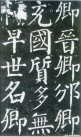 卿晉卿邠卿
充國質多無
祿早世名卿